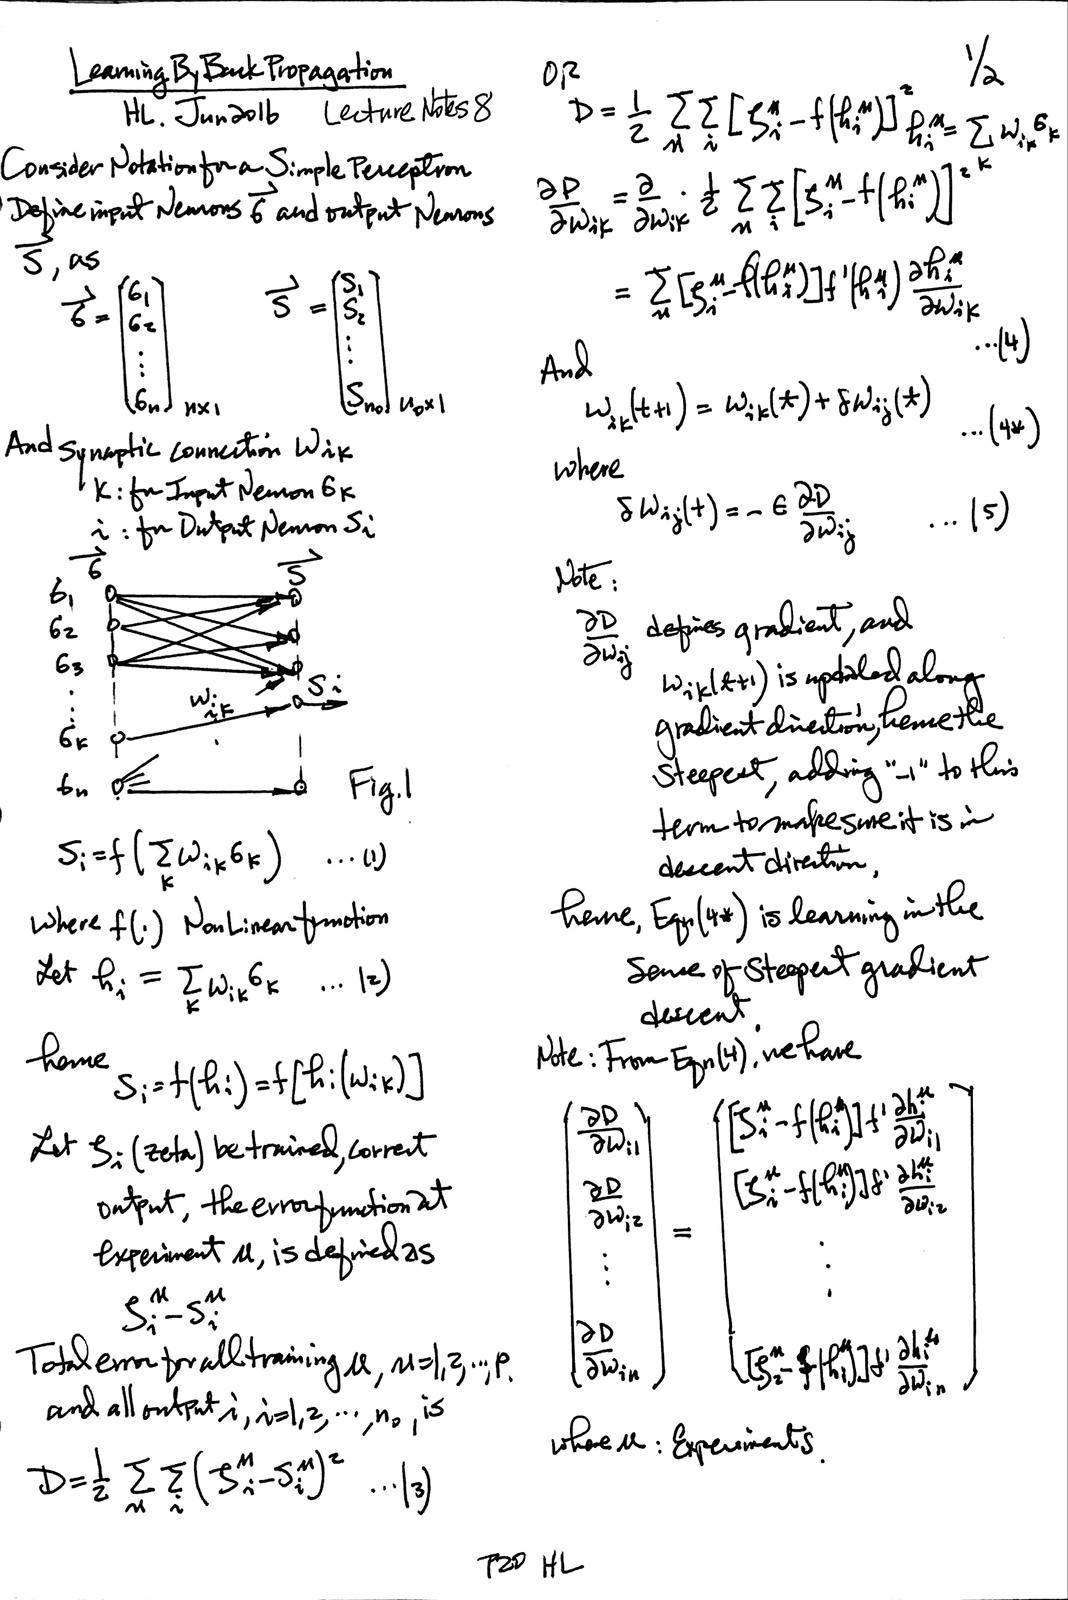 Learning By Back Propagation
HL. Jun 2016 Lecture Notes 8
Consider Notation for a Simple Perceptron
Define input Neurons σ⃗ and output Neurons
S⃗, as
σ⃗ = [σ1 σ2 ⋮ σn] n×1 S⃗ = [S1 S2 ⋮ Sn0] n0×1
And Synaptic connection wik
k: for Input Neuron σk
i: for Output Neuron Si
σ⃗ S⃗
σ1
σ2
σ3
⋮
wik Si
σk
σn Fig.1
Si = f(∑k wik σk) ...(1)
where f(.) NonLinear function
Let hi = ∑k wik σk ...(2)
hence
Si = f(hi) = f[hi(wik)]
Let ζi (zeta) be trained, correct
output, the error function at
experiment μ, is defined as
ζi^μ − Si^μ
Total error for all training μ, μ=1,2,...,p.
and all output i, i=1,2,...,n0, is
D = 1/2 ∑μ ∑i (ζi^μ − Si^μ)^2 ...(3)
1/2
OR
D = 1/2 ∑μ ∑i [ζi^μ − f(hi^μ)]^2 hi^μ = ∑k wik σk
∂D/∂wik = ∂/∂wik · 1/2 ∑μ ∑i [ζi^μ − f(hi^μ)]^2
= ∑μ [ζi^μ − f(hi^μ)] f'(hi^μ) ∂hi^μ/∂wik
...(4)
And
wik(t+1) = wik(t) + δwij(t)
...(4*)
where
δwij(t) = −ϵ ∂D/∂wij ...(5)
Note:
∂D/∂wij defines gradient, and
wik(t+1) is updated along
gradient direction, hence the
Steepest, adding "−1" to this
term to make sure it is in
descent direction,
hence, Eqn(4*) is learning in the
Sense of Steepest gradient
descent.
Note: From Eqn(4), we have
[∂D/∂wi1 ∂D/∂wi2 ⋮ ∂D/∂win] = [[ζi^μ − f(hi^μ)] f' ∂hi^μ/∂wi1 [ζi^μ − f(hi^μ)] f' ∂hi^μ/∂wi2 ⋮ [ζ2^μ − f(hi^μ)] f' ∂hi^μ/∂win]
where μ: Experiments.
HL